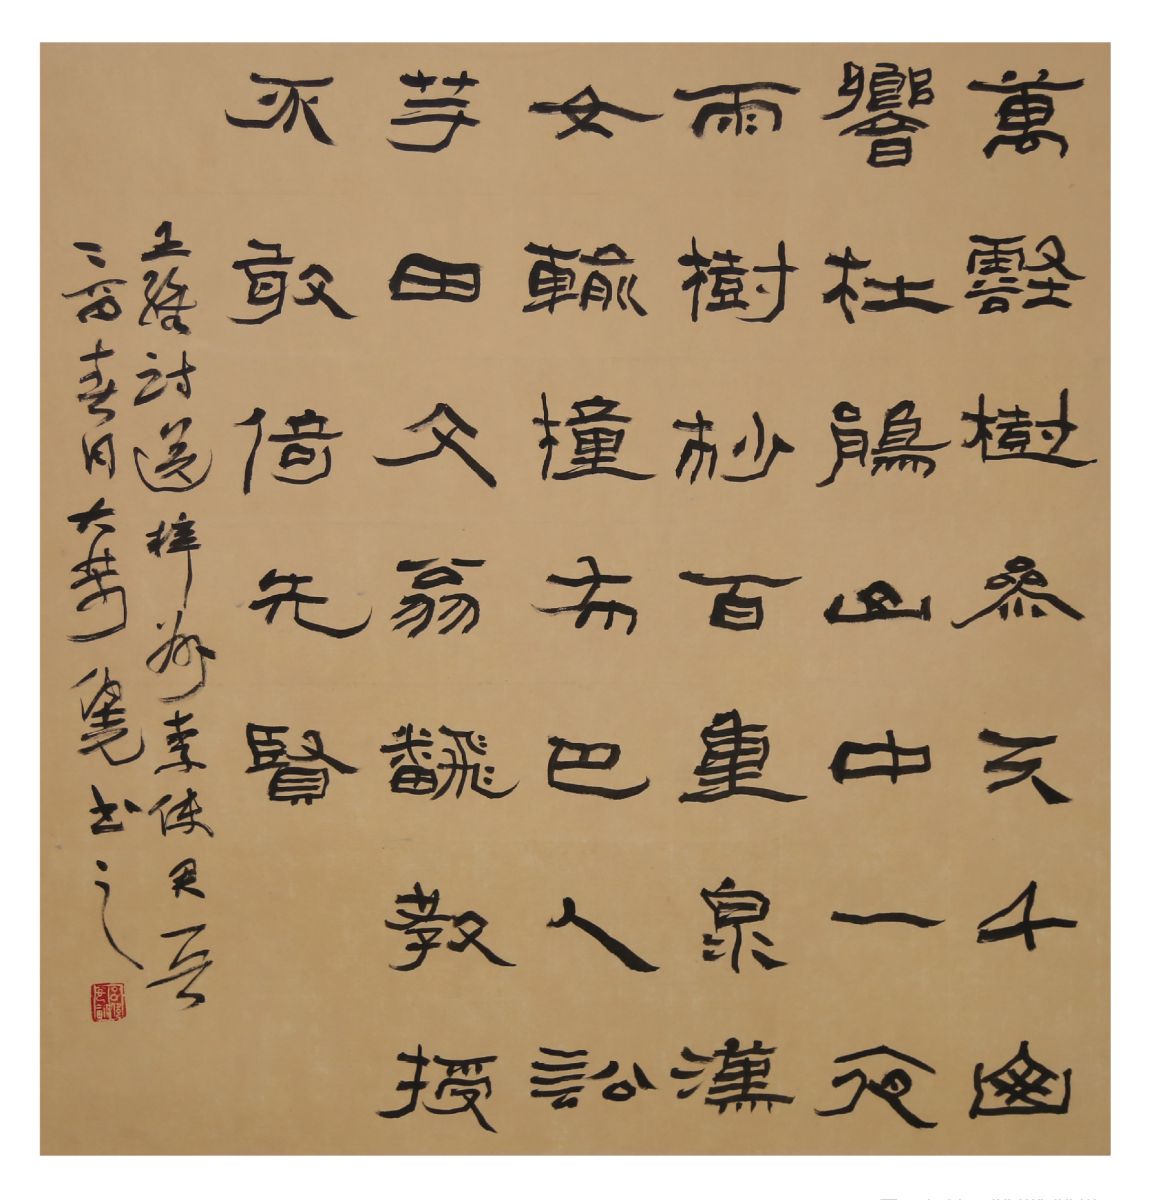 萬壑樹參天千山
響杜鵑山中一夜
雨樹杪百重泉漢
女輸橦布巴人訟
芋田文翁飜教授
不敢倚先賢
王維詩送梓州李使君一首
春月大書之